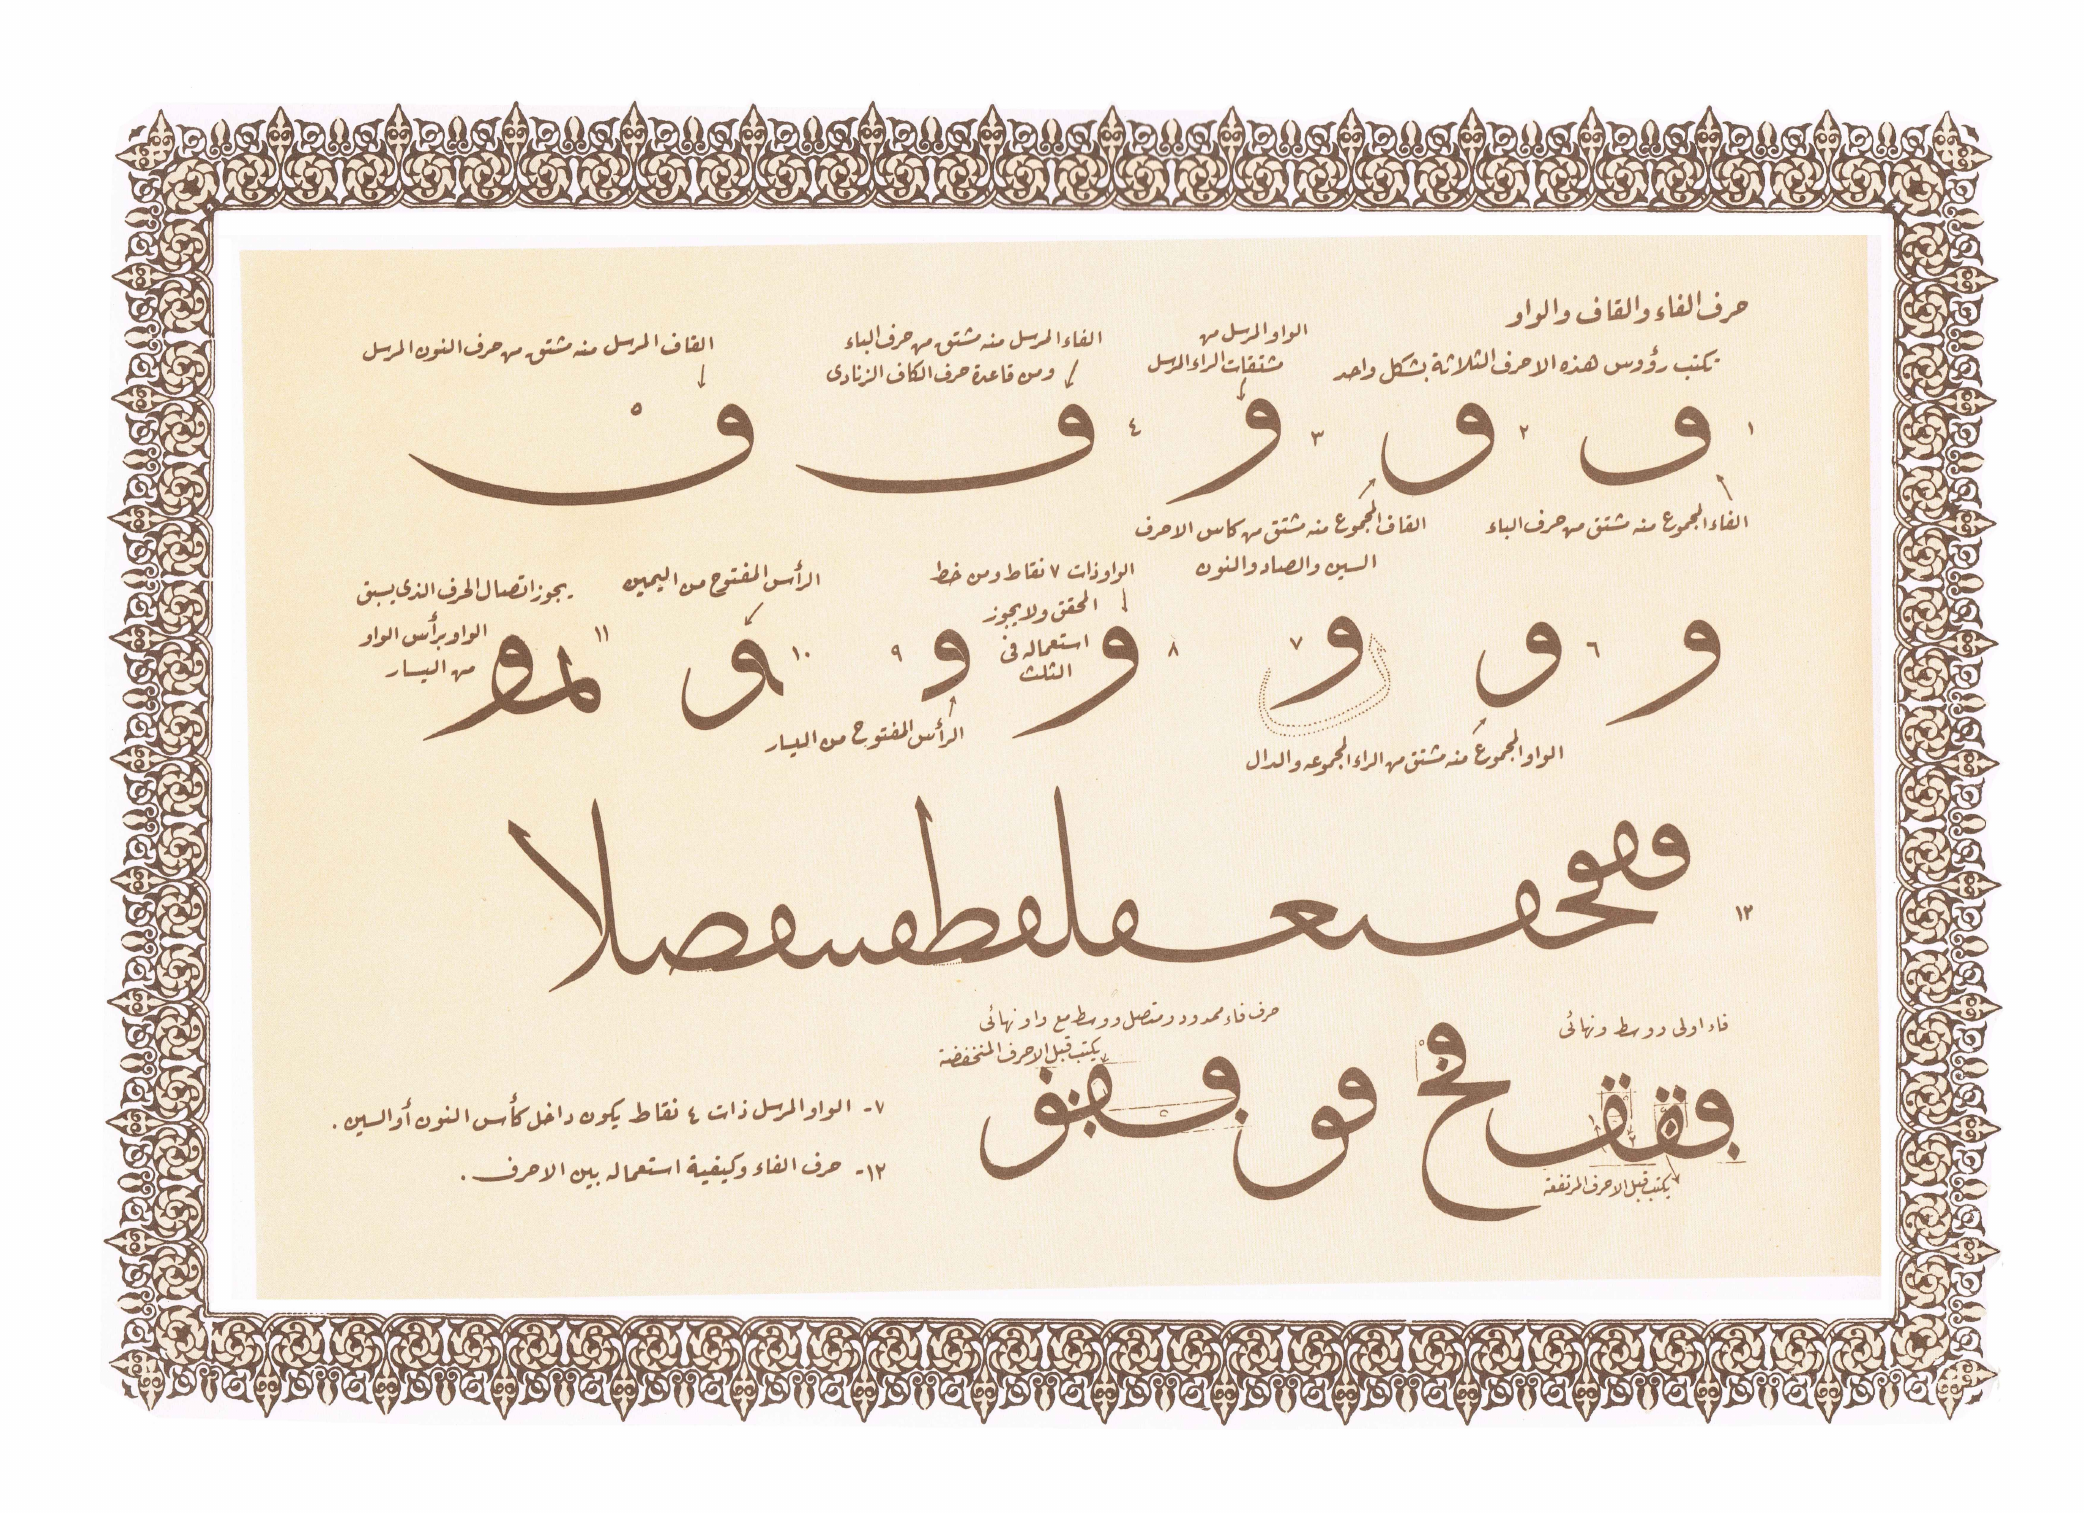 حرف الفاء والقاف والواو
تكتب رؤوس هذه الاحرف الثلاثة بشكل واحد
الواو المرسل من
مشتقات الراء المرسل
الفاء المرسل منه مشتق من حرف الباء
ومن قاعدة حرف الكاف الزنادى
القاف المرسل منه مشتق من حرف النون المرسل
١ ٢ ٣ ٤ ٥
ف و و ف ف
الفاء المجموع منه مشتق من حرف الباء
القاف المجموع منه مشتق من كاس الاحرف
السين والصاد والنون
الواو ذات ٧ نقاط ومن خط
المحقق ولا يجوز
استعماله فى
الثلث
الرأس المفتوح من اليمين
يجوز اتصال الحرف الذى يسبق
الواو برأس الواو
من اليسار
٦ ٧ ٨ ٩ ١٠ ١١
و و و و و و لمو
الواو المجموع منه مشتق من الراء المجموعه والدال
الرأس المفتوح من اليسار
١٢
فاء اولى ووسط ونهائى
حرف فاء ممدود ومتصل ووسط مع واو نهائى
يكتب قبل الاحرف المنخفضة
يكتب قبل الاحرف المرتفعة
٧- الواو المرسل ذات ٤ نقاط يكون داخل كأس النون أو السين .
١٢- حرف الفاء وكيفية استعماله بين الاحرف .